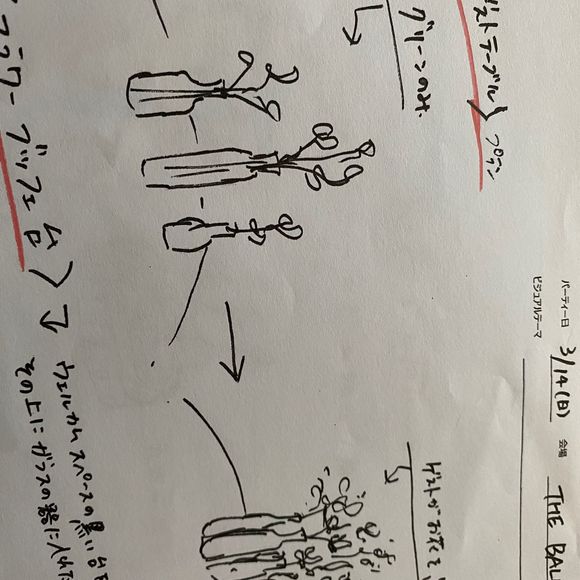 パーティー日 3/14(日) 会場 THE BAL
ビジュアルテーマ
ゲストテーブル
グリーンのみ.
ゲストがお花を
フラワーブッフェ台) → ウェルカムスペースの黒い台
その上にガラスの器に入れた